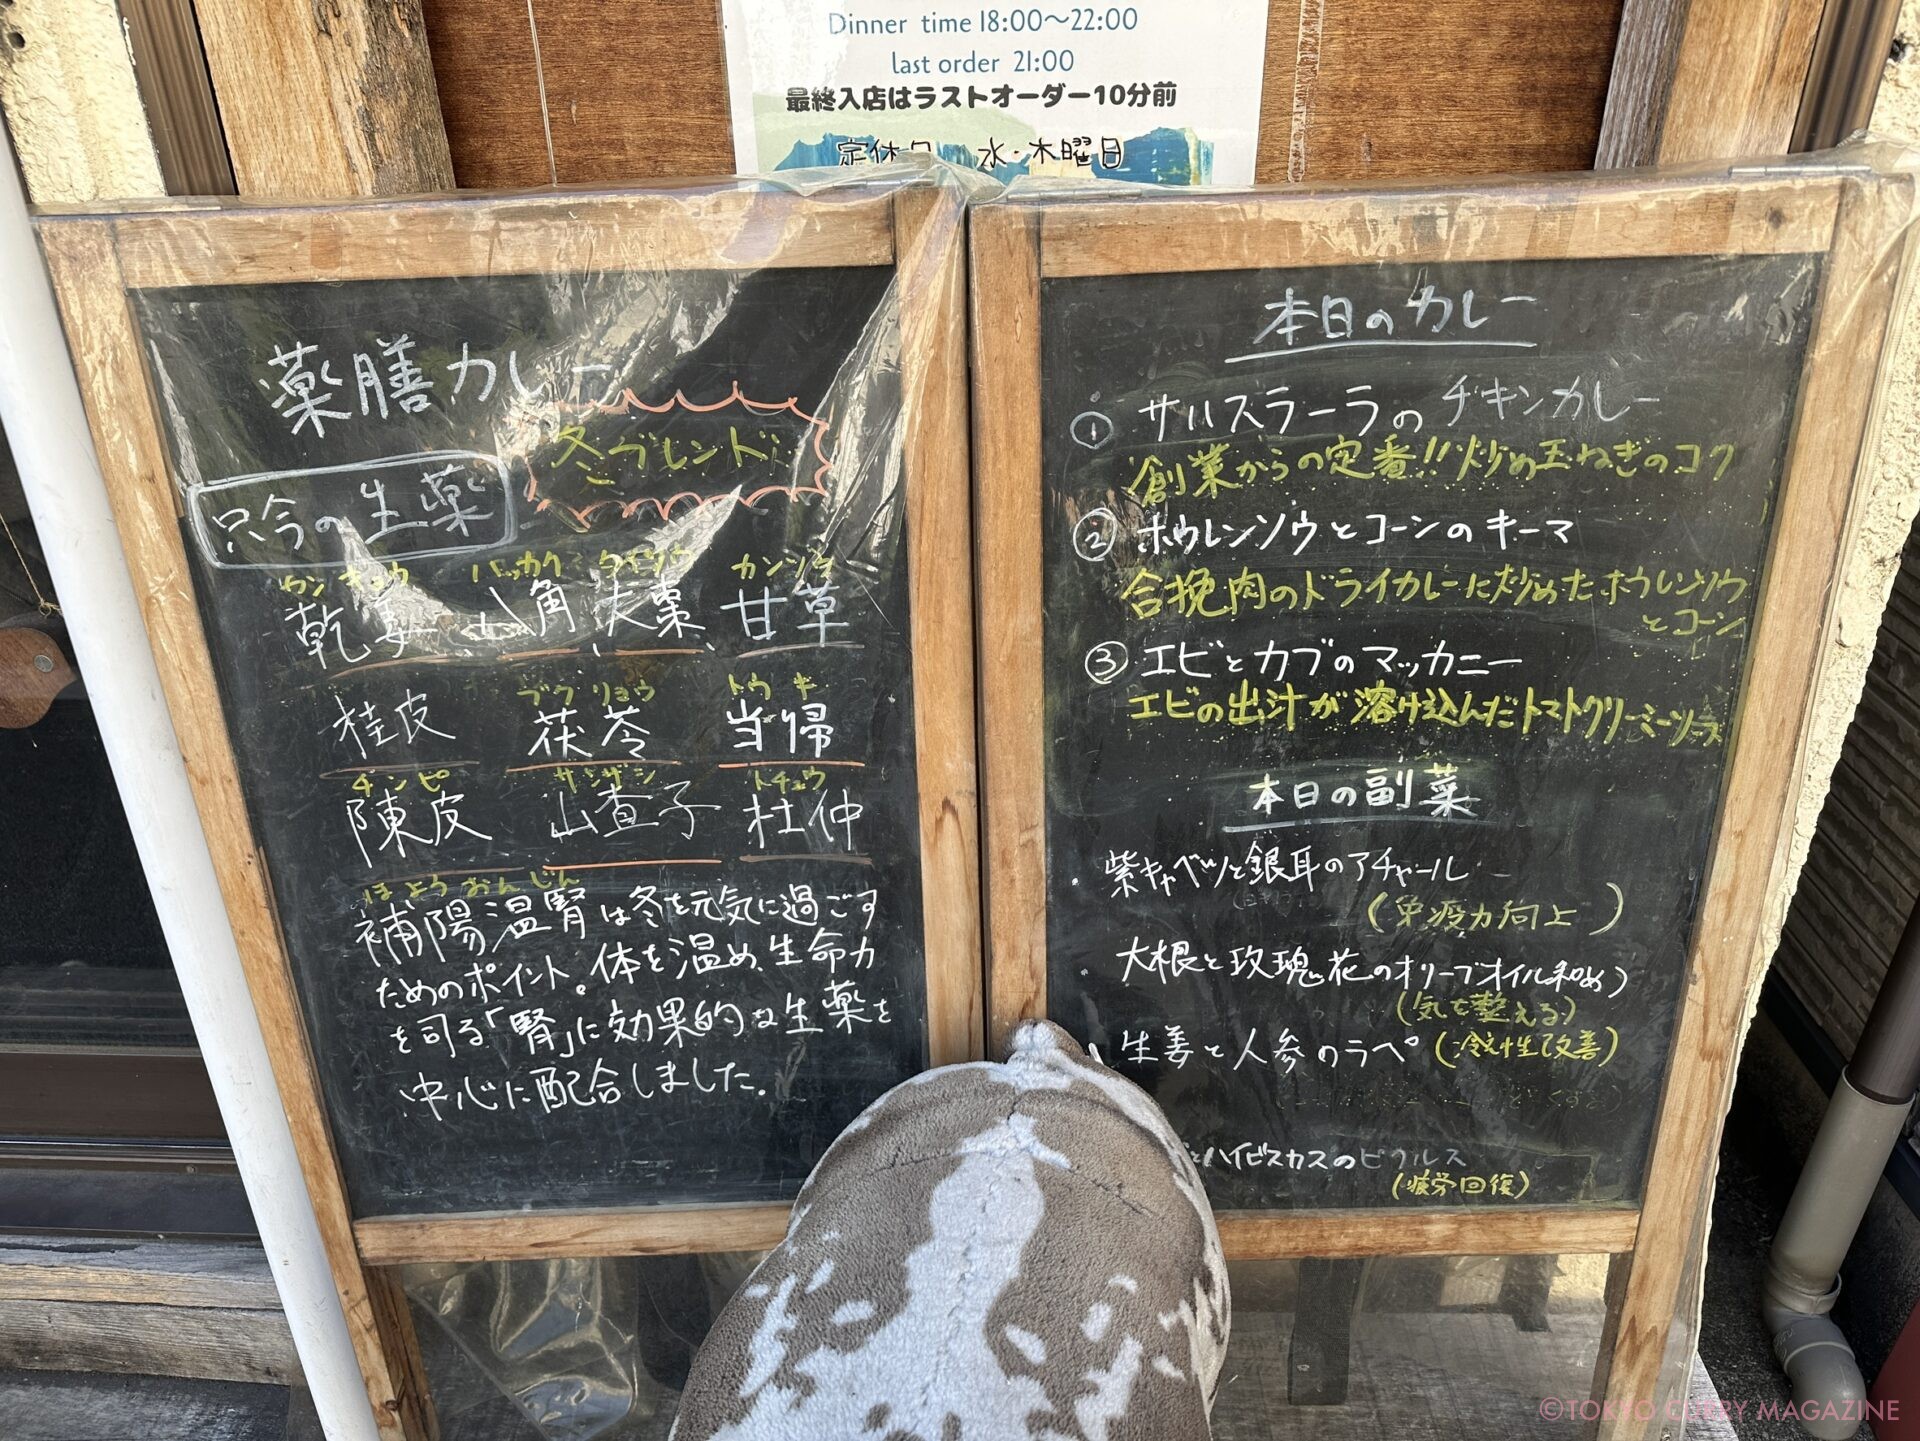 Dinner time 18:00～22:00
last order 21:00
最終入店はラストオーダー10分前
定休日 水・木曜日
薬膳カレー
冬ブレンド
只今の生薬
カンキョウ ハッカク タイソウ カンゾウ
乾姜 八角 大棗 甘草
ブクリョウ トウキ
桂皮 茯苓 当帰
チンピ サンザシ トチュウ
陳皮 山査子 杜仲
ほようおんじん
補陽温腎は冬を元気に過ごす
ためのポイント。体を温め、生命力
を司る「腎」に効果的な生薬を
中心に配合しました。
本日のカレー
① サハスラーラのチキンカレー
創業からの定番!!炒め玉ねぎのコク
② ホウレンソウとコーンのキーマ
合挽肉のドライカレーに炒めたホウレンソウ
とコーン
③ エビとカブのマッカニー
エビの出汁が溶け込んだトマトクリーミーソース
本日の副菜
・紫キャベツと銀耳のアチャール
(免疫力向上)
・大根と玫瑰花のオリーブオイル和め
(気を整える)
生姜と人参のラペ (冷え性改善)
とハイビスカスのピクルス
(疲労回復)
©TOKYO CURRY MAGAZINE